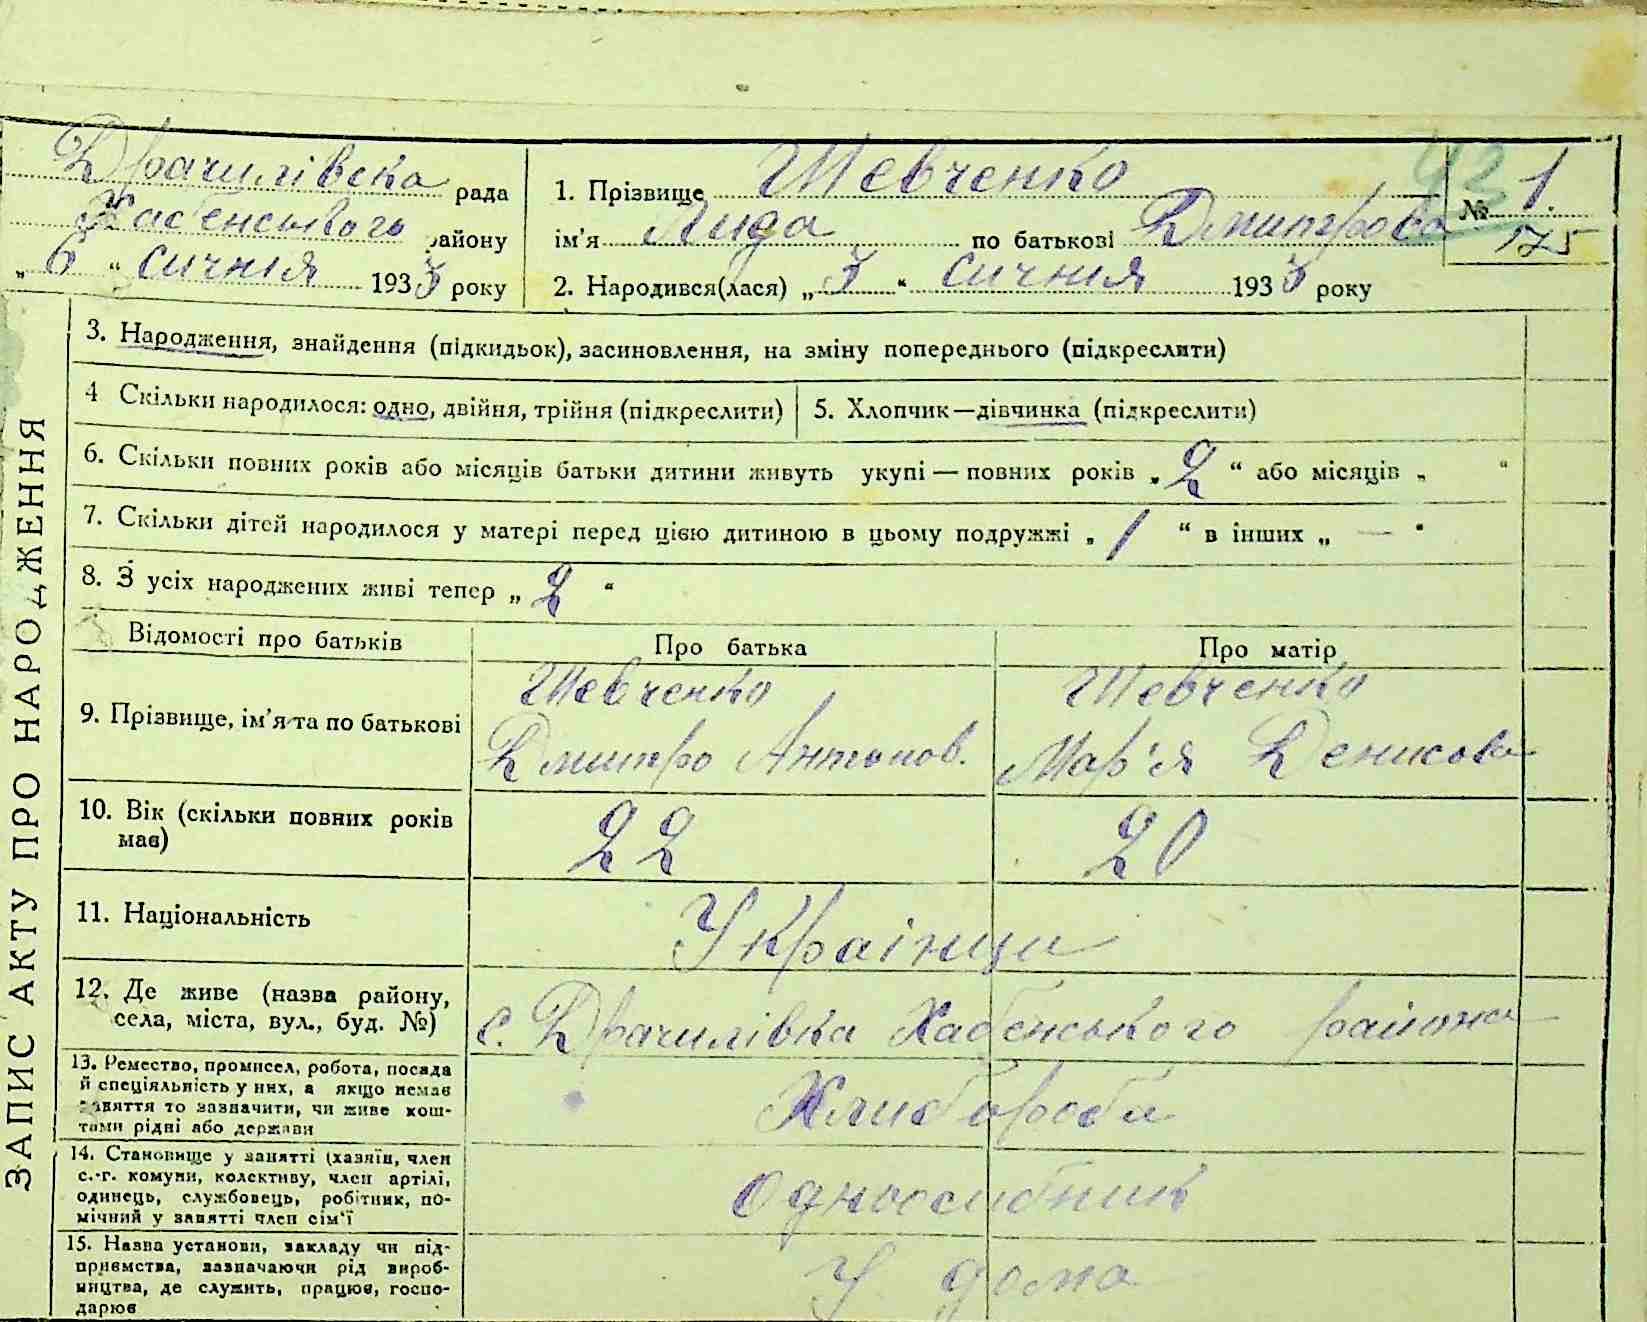 Драчилівська рада
Хабенського району
„ 6 “ сичния 1933 року
1. Прізвище Шевченко
ім'я Лида по батькові Дмитрова
2. Народився(лася) „ 3 “ сичния 1933 року
43
№ 1.
175
ЗАПИС АКТУ ПРО НАРОДЖЕННЯ
3. Народження, знайдення (підкидьок), засиновлення, на зміну попереднього (підкреслити)
4 Скільки народилося: одно, двійня, трійня (підкреслити)
5. Хлопчик—дівчинка (підкреслити)
6. Скільки повних років або місяців батьки дитини живуть укупі — повних років „ 2 “ або місяців „ “
7. Скільки дітей народилося у матері перед цією дитиною в цьому подружжі „ 1 “ в інших „ — “
8. З усіх народжених живі тепер „ 2 “
Відомості про батьків Про батька Про матір
9. Прізвище, ім'я та по батькові
Шевченко
Дмитро Антонов.
Шевченко
Мар'я Денисова
10. Вік (скільки повних років
має)
22 20
11. Національність Українци
12. Де живе (назва району,
села, міста, вул., буд. №)
с. Драчилівка Хабенського района
13. Ремество, промисел, робота, посада
й спеціяльність у них, а якщо немає
заняття то зазначити, чи живе кош-
тами рідні або держави
Хлибороби
14. Становище у занятті (хазяїн, член
с.-г. комуни, колективу, член артілі,
одинець, службовець, робітник, по-
мічний у занятті член сім'ї
Одноосибник
15. Назва установи, закладу чи під-
приємства, зазначаючи рід вироб-
ництва, де служить, працює, госпо-
дарює
У дома